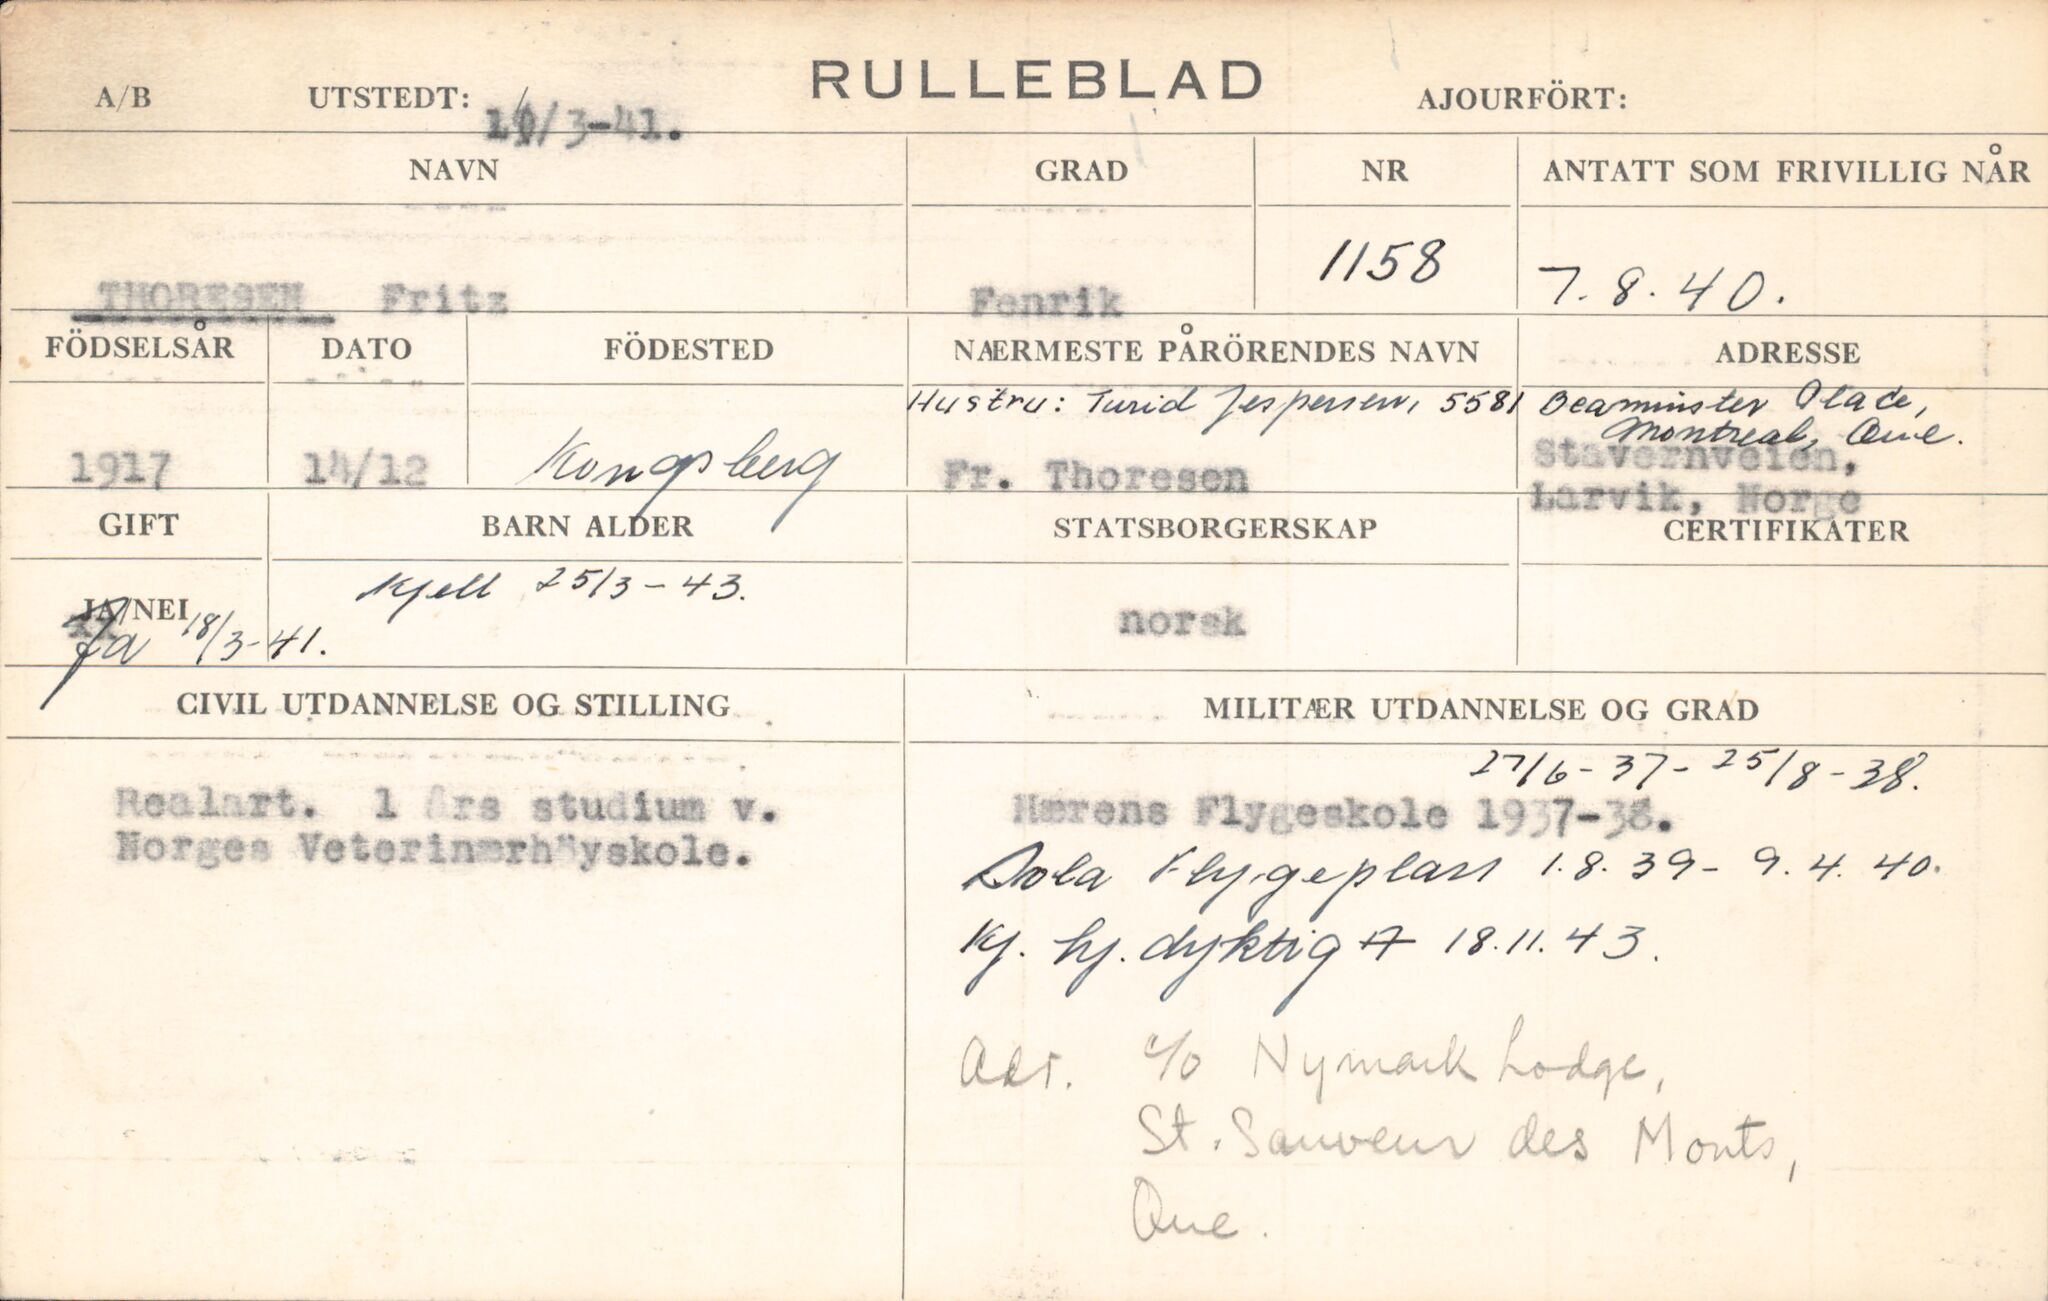 RULLEBLAD
A/B UTSTEDT: /3-41. AJOURFÖRT:
NAVN GRAD NR ANTATT SOM FRIVILLIG NÅR
THORESEN Fritz Fenrik 1158 7.8.40.
FÖDSELSÅR DATO FÖDESTED NÆRMESTE PÅRÖRENDES NAVN ADRESSE
Hustru: Turid Jespersen, 5581 Beaminster Place,
Montreal, Que.
1917 14/12 Kongsberg Fr. Thoresen Stavernveien,
Larvik, Norge
GIFT BARN ALDER STATSBORGERSKAP CERTIFIKATER
Kjell 25/3-43.
JA/NEI norsk
Ja 18/3-41.
CIVIL UTDANNELSE OG STILLING MILITÆR UTDANNELSE OG GRAD
27/6-37-25/8-38.
Realart. 1 års studium v. Hærens Flygeskole 1937-38.
Norges Veterinærhöyskole.
Sola Flygeplass 1.8.39-9.4.40.
Kj. hj. dyktig A 18.11.43.
Adr. c/o Nymark Lodge,
St. Sauveur des Monts,
Que.